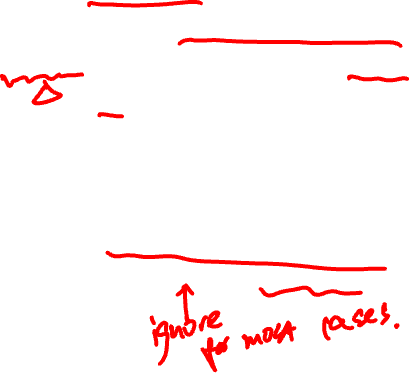 ignore
for most cases.